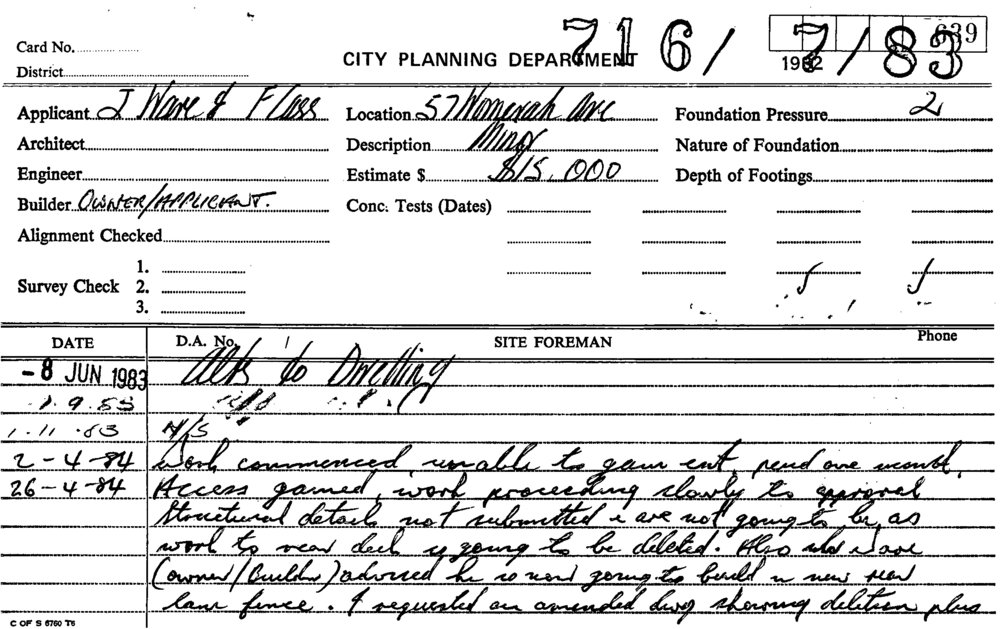 716/7/83
639
1982
Card No.
CITY PLANNING DEPARTMENT
District
Applicant J Ware & F Lass
Location 57 Womerah Ave
Foundation Pressure 2
Architect
Description Minor
Nature of Foundation
Engineer
Estimate $ $15,000
Depth of Footings
Builder OWNER/APPLICANT.
Conc. Tests (Dates)
Alignment Checked
1.
Survey Check 2.
3.
DATE D.A. No. SITE FOREMAN Phone
-8 JUN 1983 Alts to Dwelling
1.9.83
1.11.83 N/S
2-4-84 work commenced, unable to gain ent, one
26-4-84 Access gained, work proceeding slowly to approval
Structural details not submitted & are not going to be, as
work to rear deck is going to be deleted. Also Ware
(owner/Builder) advised he is now going to build a new rear
lane fence. I requested an amended dwg showing deletion plus
C OF S 6760 T6